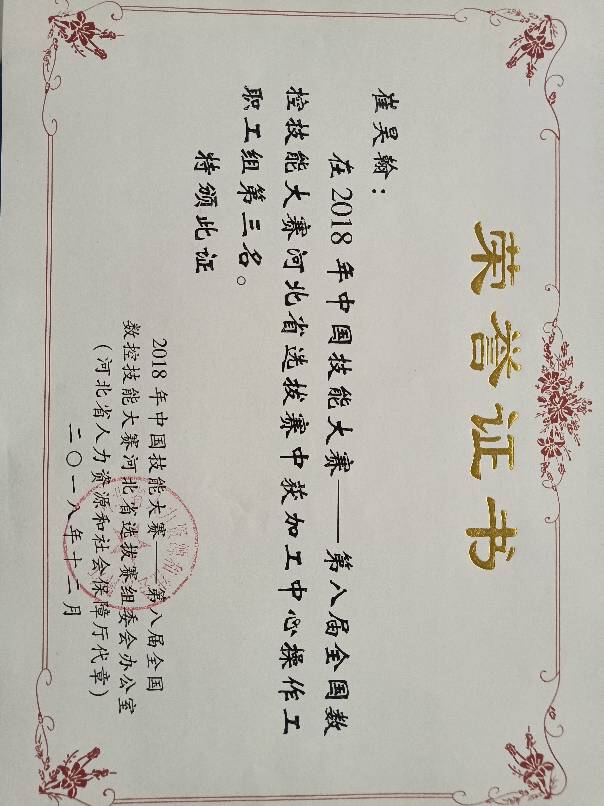 荣誉证书
崔昊翰：
在2018年中国技能大赛——第八届全国数
控技能大赛河北省选拔赛中获加工中心操作工
职工组第三名。
特颁此证
2018年中国技能大赛——第八届全国
数控技能大赛河北省选拔赛组委会办公室
（河北省人力资源和社会保障厅代章）
二〇一八年十二月